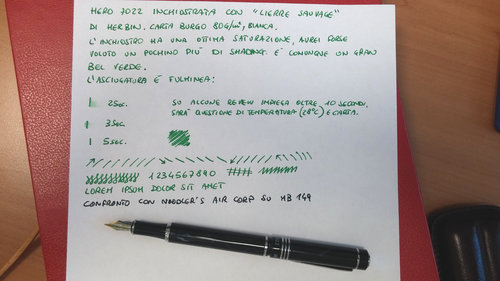 HERO 7022 INCHIOSTRATA CON "LIERRE SAUVAGE"
DI HERBIN. CARTA BURGO 80G/m², BIANCA.
L'INCHIOSTRO HA UNA OTTIMA SATURAZIONE, AVREI FORSE
VOLUTO UN POCHINO PIÙ DI SHADING. È COMUNQUE UN GRAN
BEL VERDE.
L'ASCIUGATURA È FULMINEA:
2 SEC. SU ALCUNE REVIEW IMPIEGA OLTRE 10 SECONDI.
SARÀ QUESTIONE DI TEMPERATURA (28°C) E CARTA.
3 SEC.
5 SEC.
1234567890 ####
LOREM IPSUM DOLOR SIT AMET
CONFRONTO CON NOODLER'S AIR CORP SU MB 149